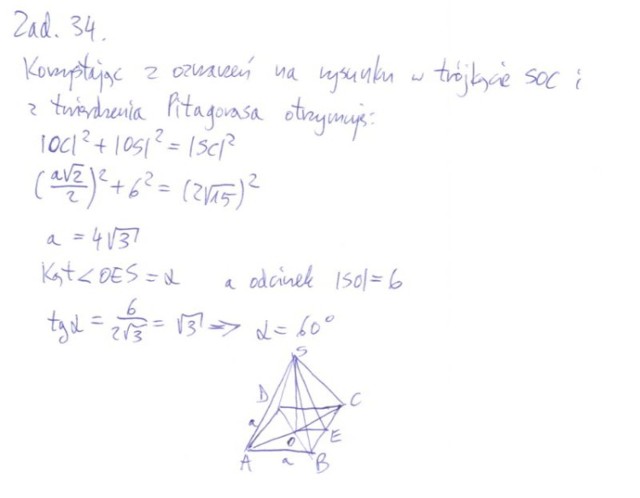 Zad. 34.
Korzystając z oznaczeń na rysunku w trójkącie SOC i
z twierdzenia Pitagorasa otrzymuję:
|OC|² + |OS|² = |SC|²
(a√2/2)² + 6² = (2√15)²
a = 4√3
Kąt ∢OES = α a odcinek |SO| = 6
tgα = 6/2√3 = √3 => α = 60°
S
D C
a
O E
A a B